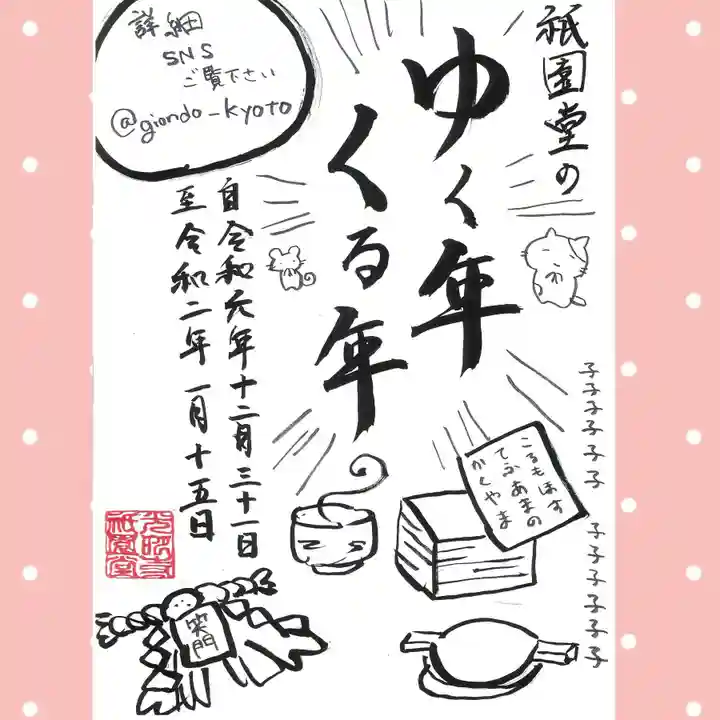 祇園堂の
ゆく年
くる年
詳細
SNS
ご覧下さい
@giondo_kyoto
自令和元年十二月三十一日
至令和二年一月十五日
子子子子子子 子子子子子子
ころもほす
てふあまの
かぐやま
笑門
祇園堂